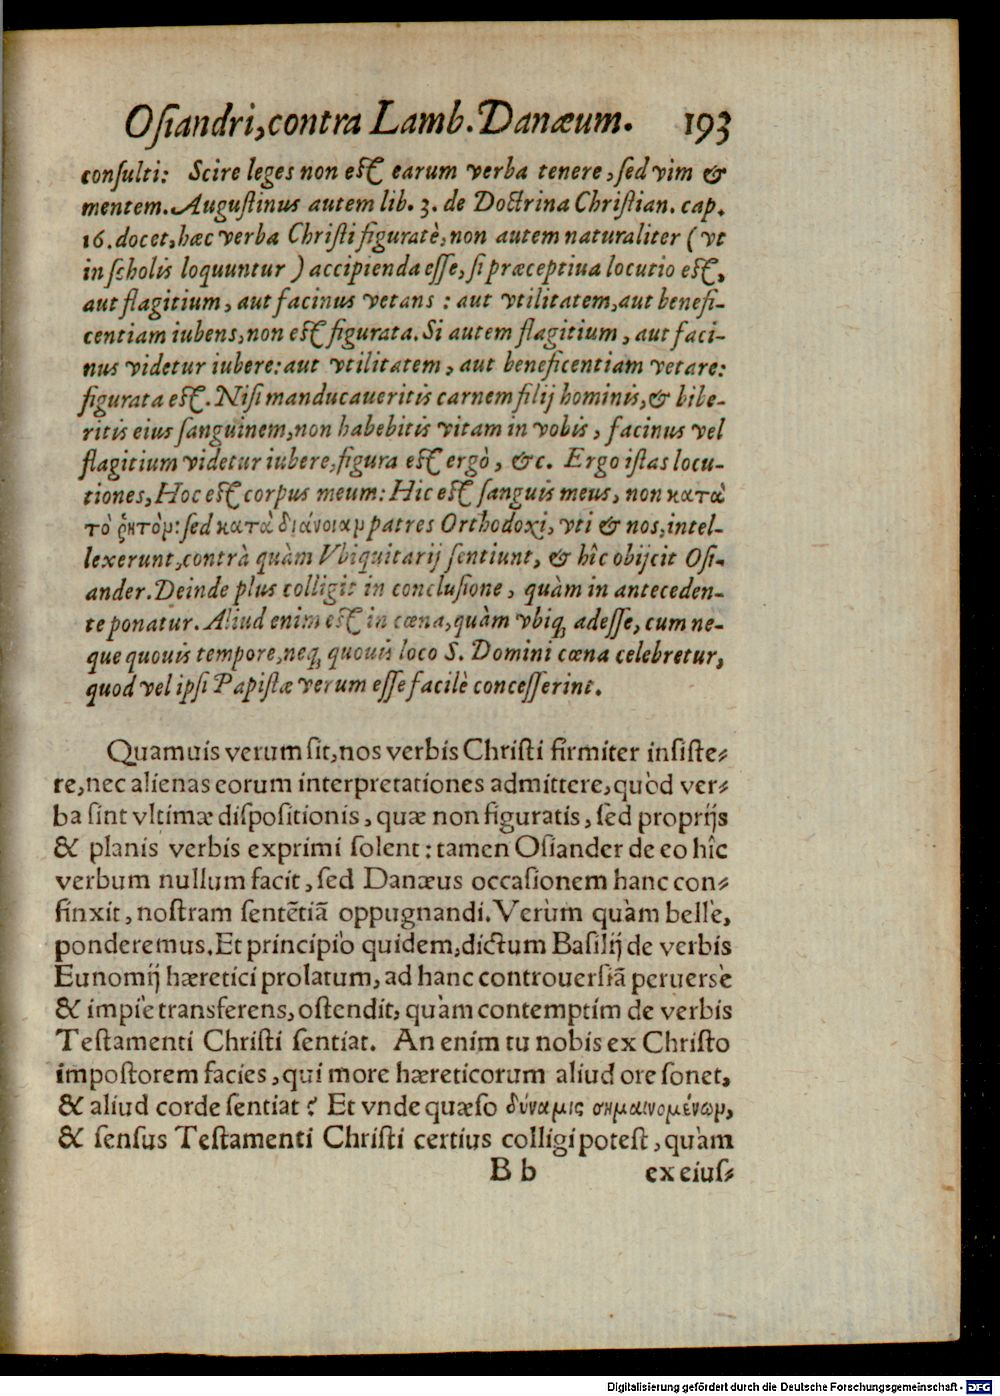 Osiandri, contra Lamb. Danæum. 193
consulti: Scire leges non est earum verba tenere, sed vim &
mentem. Augustinus autem lib. 3. de Doctrina Christian. cap.
16. docet, hæc verba Christi figuratè, non autem naturaliter (vt
in scholis loquuntur) accipienda esse, si præceptiua locutio est,
aut flagitium, aut facinus vetans: aut vtilitatem, aut benefi-
centiam iubens, non est figurata. Si autem flagitium, aut faci-
nus videtur iubere: aut vtilitatem, aut beneficentiam vetare:
figurata est. Nisi manducaueritis carnem filij hominis, & bibe-
ritis eius sanguinem, non habebitis vitam in vobis, facinus vel
flagitium videtur iubere, figura est ergò, &c. Ergo istas locu-
tiones, Hoc est corpus meum: Hic est sanguis meus, non κατὰ
τὸ ῥητὸν: sed κατὰ διάνοιαν patres Orthodoxi, vti & nos, intel-
lexerunt, contrà quàm Vbiquitarij sentiunt, & hîc obijcit Osi-
ander. Deinde plus colligit in conclusione, quàm in anteceden-
te ponatur. Aliud enim est in cœna, quàm vbiq; adesse, cum ne-
que quouis tempore, neq; quouis loco S. Domini cœna celebretur,
quod vel ipsi Papistæ verum esse facilè concesserint.
Quamuis verum sit, nos verbis Christi firmiter insiste-
re, nec alienas eorum interpretationes admittere, quòd ver-
ba sint vltimæ dispositionis, quæ non figuratis, sed proprijs
& planis verbis exprimi solent: tamen Osiander de eo hîc
verbum nullum facit, sed Danæus occasionem hanc con-
finxit, nostram sentẽtiã oppugnandi. Verùm quàm bellè,
ponderemus. Et principiò quidem, dictum Basilij de verbis
Eunomij hæretici prolatum, ad hanc controuersiã peruersè
& impiè transferens, ostendit, quàm contemptim de verbis
Testamenti Christi sentiat. An enim tu nobis ex Christo
impostorem facies, qui more hæreticorum aliud ore sonet,
& aliud corde sentiat? Et vnde quæso δύναμις σημαινομένων,
& sensus Testamenti Christi certius colligi potest, quàm
B b ex eius-
Digitalisierung gefördert durch die Deutsche Forschungsgemeinschaft - DFG